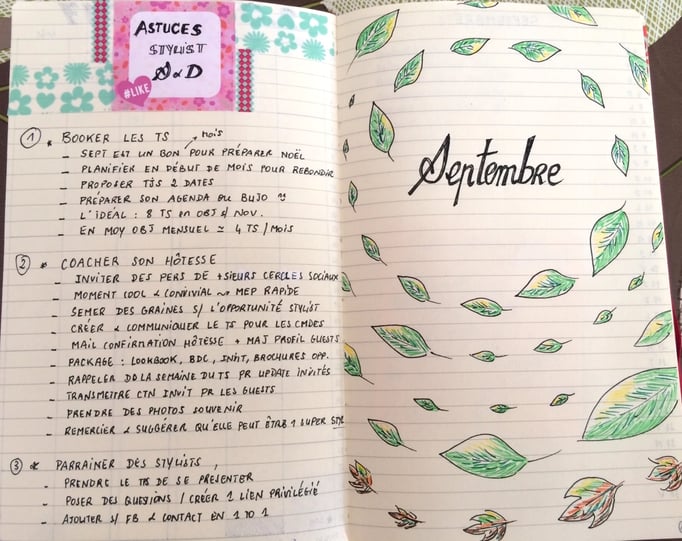 ASTUCES
STYLIST
S & D
#LIKE
1 * BOOKER LES TS
- SEPT EST UN BON mois POUR PRÉPARER NOËL
- PLANIFIER EN DÉBUT DE MOIS POUR REBONDIR
- PROPOSER TJS 2 DATES
- PRÉPARER SON AGENDA OU BUJO
- L'IDÉAL : 8 TS en OBJ s/ NOV.
- EN MOY OBJ MENSUEL ≃ 4 TS / MOIS
2 * COACHER SON HÔTESSE
- INVITER DES PERS DE +SIEURS CERCLES SOCIAUX
- MOMENT COOL & CONVIVIAL ~> MEP RAPIDE
- SEMER DES GRAINES S/ L'OPPORTUNITÉ STYLIST
- CRÉER & COMMUNIQUER LE TS POUR LES CMDES
- MAIL CONFIRMATION HÔTESSE + MAJ PROFIL GUESTS
- PACKAGE : LOOKBOOK, BDC, INVIT, BROCHURES OPP.
- RAPPELER DD LA SEMAINE DU TS PR UPDATE INVITÉS
- TRANSMETTRE CTN INVIT PR LES GUESTS
- PRENDRE DES PHOTOS SOUVENIR
- REMERCIER & SUGGÉRER QU'ELLE PEUT ÊTRE 1 SUPER
3 * PARRAINER DES STYLISTS
- PRENDRE LE TPS DE SE PRÉSENTER
- POSER DES QUESTIONS / CRÉER 1 LIEN PRIVILÉGIÉ
- AJOUTER S/ FB & CONTACT EN 1 TO 1
Septembre